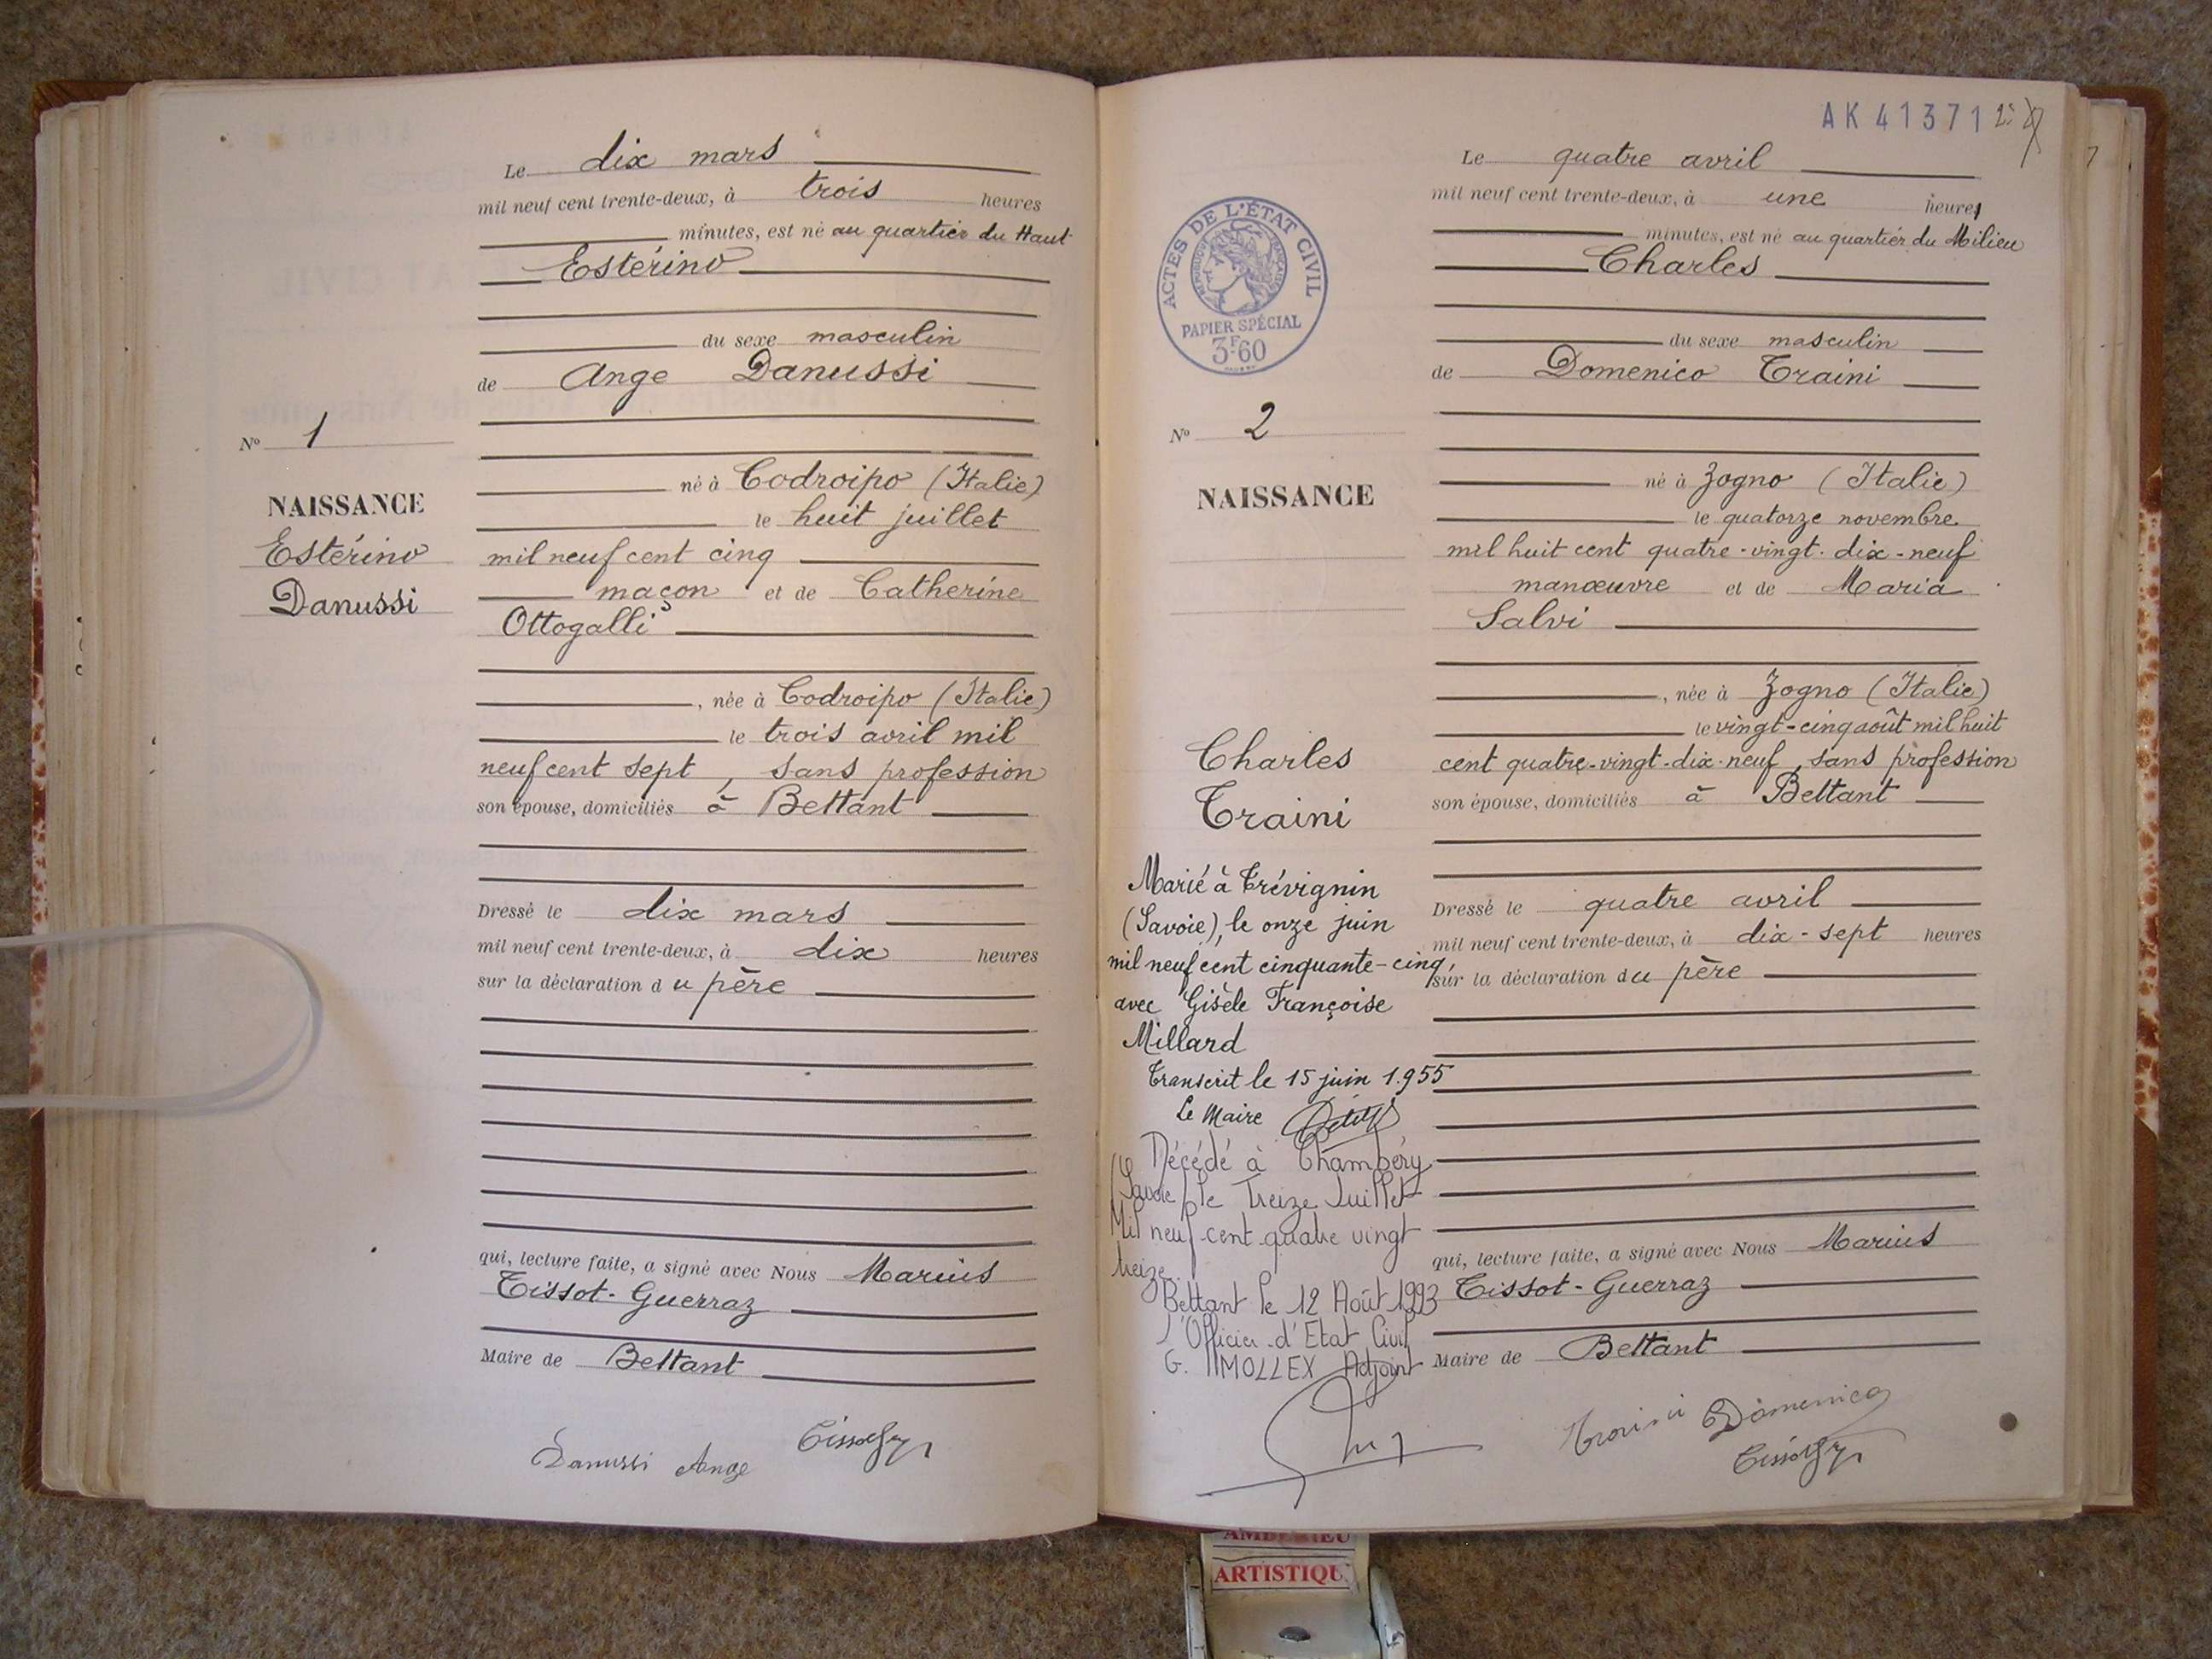 Le dix mars
mil neuf cent trente-deux, à trois heures
minutes, est né au quartier du Haut
Estérino
du sexe masculin
de Ange Danussi
né à Codroipo (Italie)
le huit juillet
mil neuf cent cinq
maçon et de Catherine
Ottogalli
, née à Codroipo (Italie)
le trois avril mil
neuf cent sept, sans profession
son épouse, domiciliés à Bettant
Dressé le dix mars
mil neuf cent trente-deux, à dix heures
sur la déclaration du père
qui, lecture faite, a signé avec Nous Marius
Tissot-Guerraz
Maire de Bettant
Danussi Ange
N° 1
NAISSANCE
Estérino
Danussi
AK 41371
Le quatre avril
mil neuf cent trente-deux, à une heure
minutes, est né au quartier du Milieu
Charles
du sexe masculin
de Domenico Traini
né à Zogno (Italie)
le quatorze novembre
mil huit cent quatre-vingt-dix-neuf
manœuvre et de Maria
Salvi
, née à Zogno (Italie)
le vingt-cinq août mil huit
cent quatre-vingt-dix-neuf, sans profession
son épouse, domiciliés à Bettant
Dressé le quatre avril
mil neuf cent trente-deux, à dix-sept heures
sur la déclaration du père
qui, lecture faite, a signé avec Nous Marius
Tissot-Guerraz
Maire de Bettant
Traini Domenico
ACTES DE L'ÉTAT CIVIL
RÉPUBLIQUE FRANÇAISE
PAPIER SPÉCIAL
3F60
N° 2
NAISSANCE
Charles
Traini
Marié à Trévignin
(Savoie), le onze juin
mil neuf cent cinquante-cinq,
avec Gisèle Françoise
Millard
Transcrit le 15 juin 1.955
Le Maire
Décédé à Chambéry
(Savoie) le Treize Juillet
Mil neuf cent quatre vingt
treize
Bettant le 12 Août 1993
l'Officier d'Etat Civil
G. MOLLEX Adjoint
ARTISTIQU